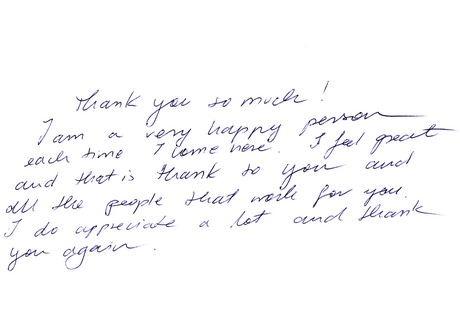 Thank you so much!
I am a very happy person
each time I come here. I feel great
and that is thank to you and
all the people that work for you.
I do appreciate a lot and thank
you again.